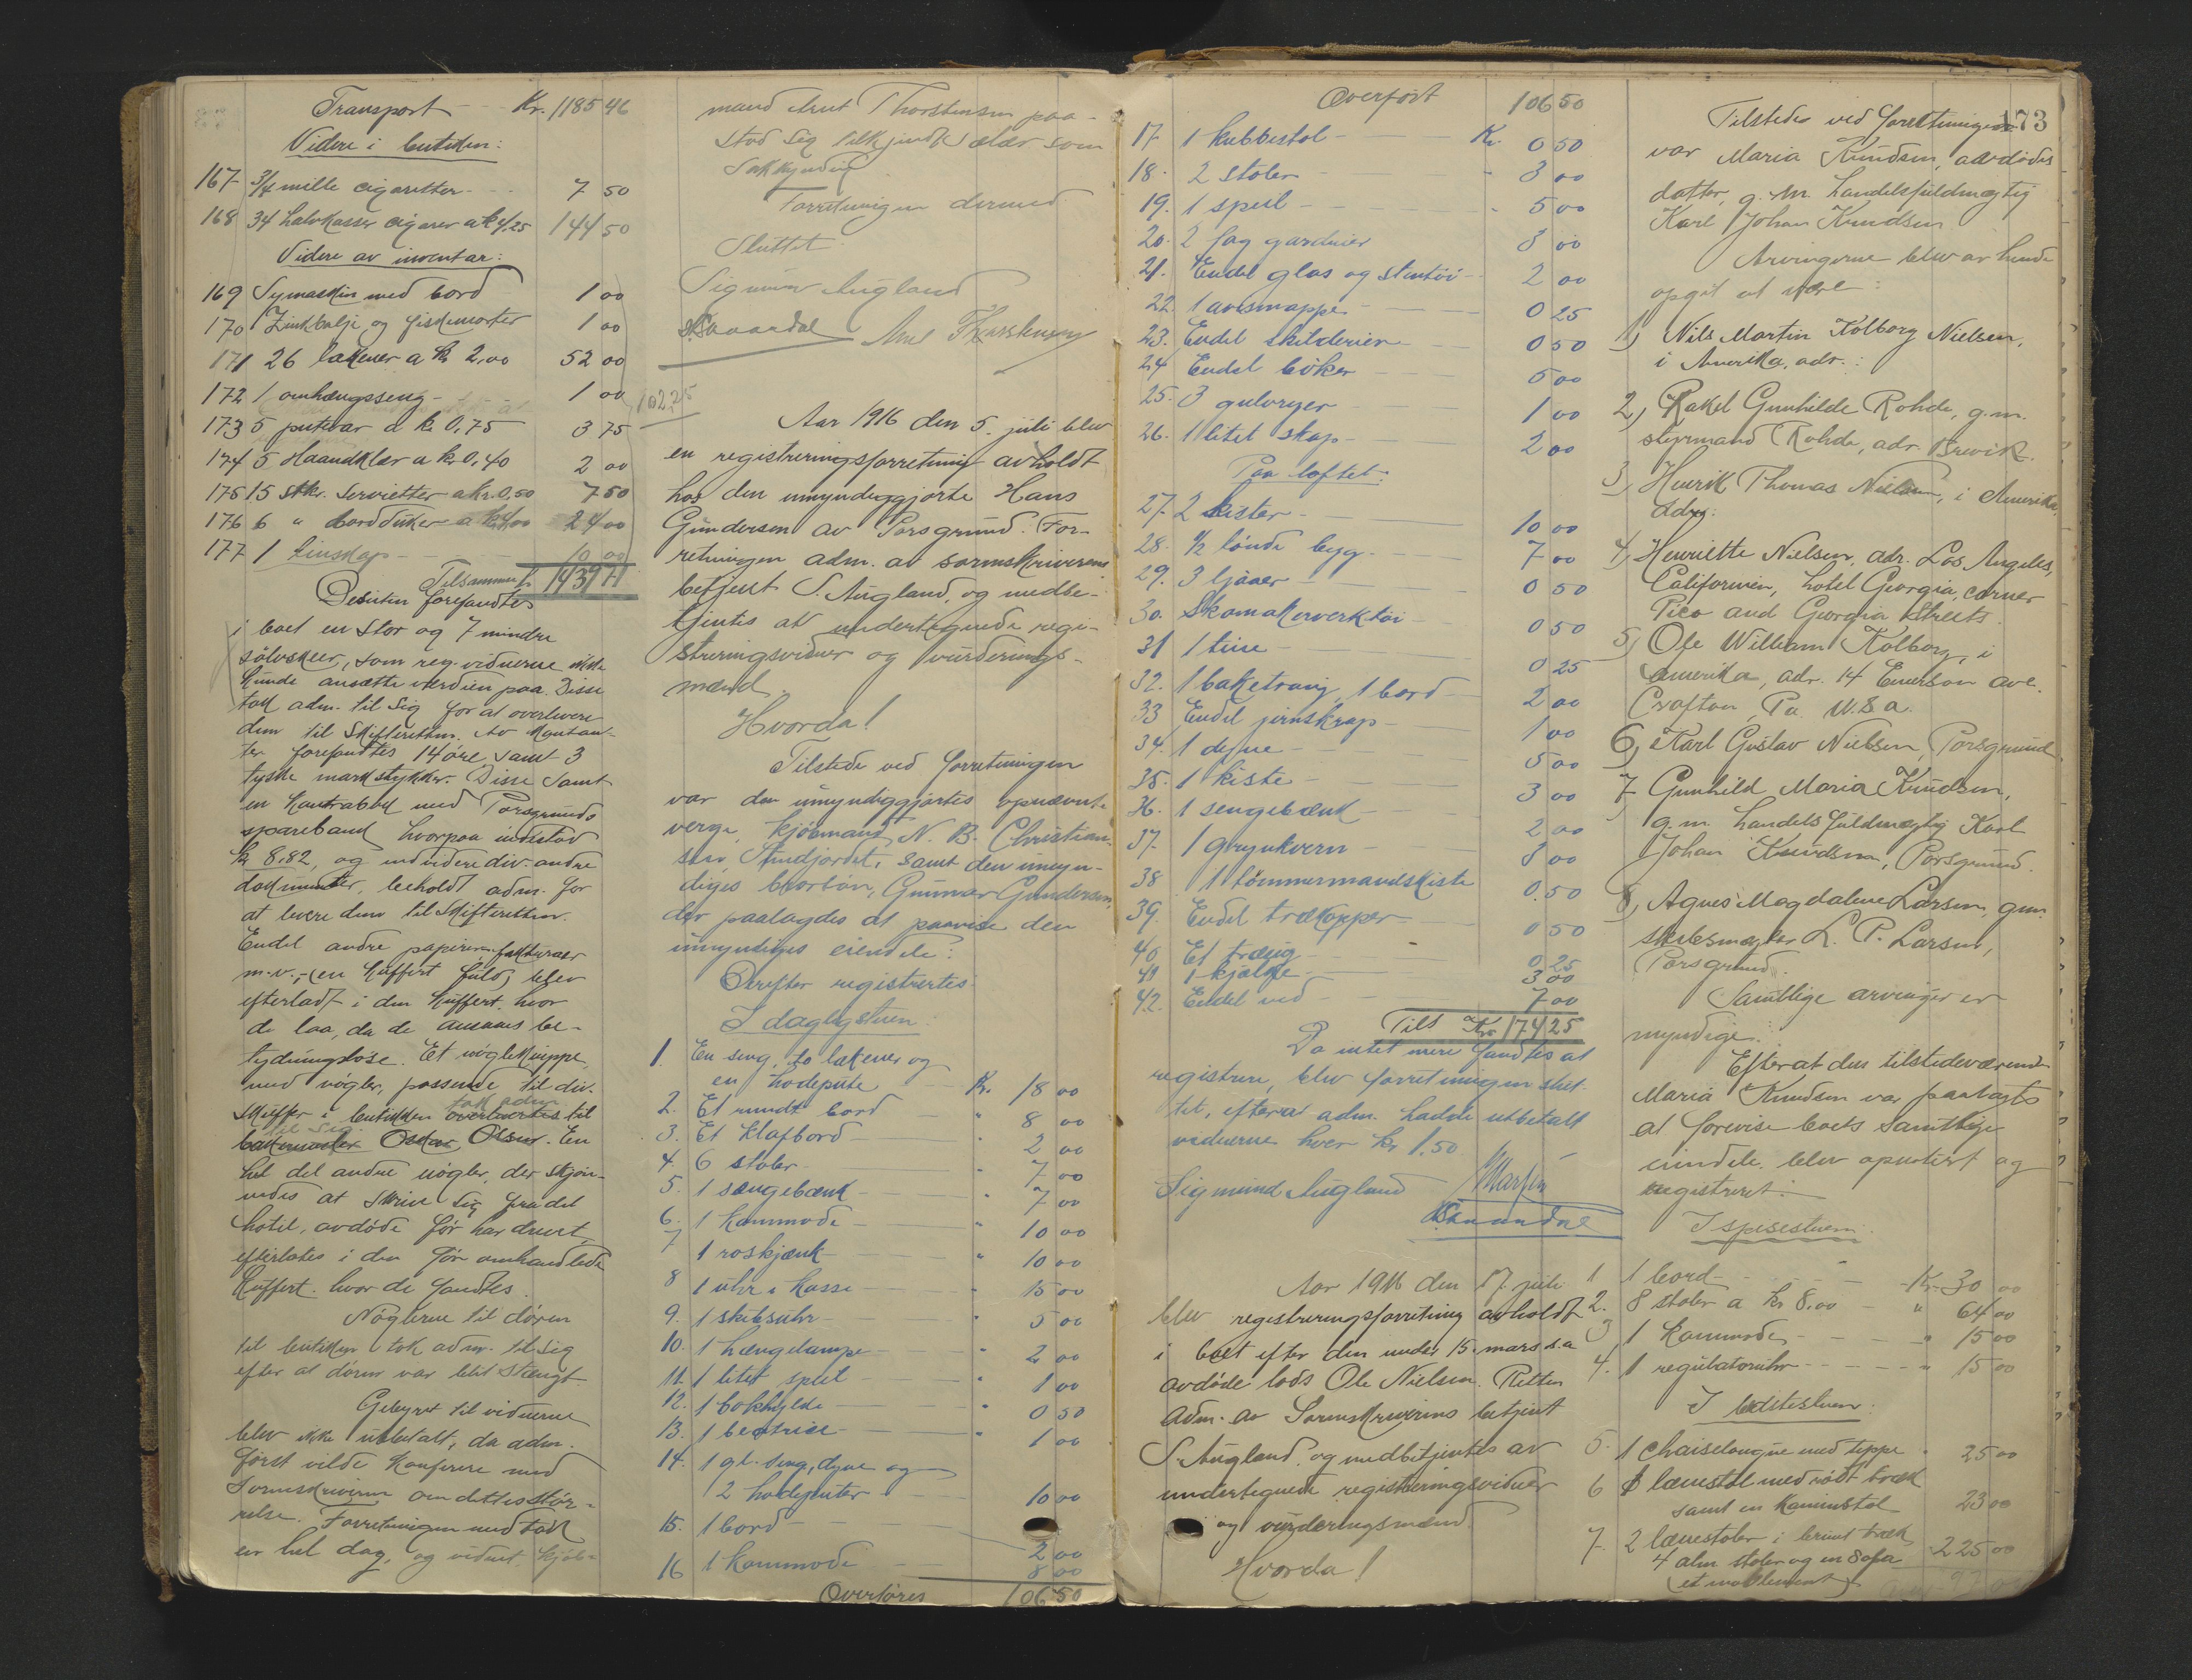 Transport Kr. 1185 46
Videre i butiken:
167 3/4 mille cigaretter - 7 50
168 34 halvkasser cigarer a kr 4,25 144 50
Videre av inventar:
169 Symaskin med bord 1 00
170 Zinkbalje og fiskemorter 1 00
171 26 lakener a kr 2,00 52 00
172 1 omhængsseng - 1 00
173 5 putevar a kr 0,75 3 75
174 5 Haandklær a kr 0,40 2 00
175 15 stkr. Servietter a kr. 0,50 7 50
176 6 " bordduker a kr 4,00 24 00
177 1 linskap - 10 00
Tilsammen kr 1439 71
Desuten forefandtes
i boet en stor og 7 mindre
sølvskeer, som reg. vidnerne ikke
kunde ansætte verdien paa. Disse
tok adm. til sig for at overlevere
dem til Skifteretten. Av kontan-
ter forefandtes 14 øre samt 3
tyske markstykker. Disse samt
en kontrabok med Porsgrunds
sparebank hvorpaa indestod
kr 8,82, og endvidere div. andre
dokumenter, beholdt adm. for
at levere dem til Skifteretten.
Endel andre papirer, fakturaer
m.v., - (en kuffert fuld) blev
efterladt i den kuffert hvor
de laa, da de ansaaes be-
tydningsløse. Et nøgleknippe
med nøgler, passende til div.
skuffer i butikken tok adm. overlevertes til
til sig. Oskar Olsen. En
hel del andre nøgler, der skjøn-
nedes at skrive sig fra det
hotel, avdøde før har drevet,
efterlates i den før omhandlede
kuffert hvor de fandtes.
Nøglerne til døren
til butiken tok adm. til sig
efter at døren var blit stængt.
Gebyret til vidnerne
blev ikke utbetalt, da adm.
først vilde konferere med
Sorenskriveren om dettes stør-
relse. Forretningen medtok
en hel dag, og vidnet, kjøb-
mand Arnt Thorstensen paa-
stod sig tilkjendt salær som
Sakkyndig.
Forretningen dermed
Sluttet.
Sigmund Augland
Arnt Thorstensen
1022 5
Aar 1916 den 5. juli blev
en registreringsforretning avholdt
hos den umyndiggjorte Hans
Gundersen av Porsgrund. For-
retningen adm. av sorenskriverens
betjent S. Augland, og medbe-
tjentes av undertegnede regi-
streringsvidner og vurderings-
mænd.
Hvorda!
Tilstede ved forretningen
var den umyndiggjortes opnævnte
verge, kjøbmand N. B. Christian-
sen, samt den umyn-
diges brorsøn, Gunnar Gundersen,
der paalagdes at paavise den
umyndiges eiendele:
Derefter registrertes
I dagligstuen:
1. En seng, to lakener og
en hodepute Kr. 18 00
2. Et rundt bord " 8 00
3. Et klafbord " 2 00
4. 6 stoler " 7 00
5. 1 sængebænk " 7 00
6. 1 kommode " 10 00
7 1 roskjænk " 10 00
8 1 uhr i kasse " 15 00
9. 1 skibsuhr " 5 00
10. 1 hængelampe " 2 00
11. 1 litet speil " 1 00
12. 1 bokhylde " 0 50
13. 1 1 00
14. 1 gl. seng, dyne og
2 hodeputer 10 00
15. 1 bord 2 00
16 1 kommode 8 00
Overføres 106 50
Overført 106 50
17 1 kubbestol Kr. 0 50
18. 2 stoler - 3 00
19. 1 speil - 5 00
20. 2 fag gardiner 3 00
21. Endel glas og stentøi 2 00
22. 1 avismappe 0 25
23. Endel skilderier 0 50
24 Endel bøker 5 00
25. 3 gulvryer 1 00
26. 1 litet skap 2 00
Paa loftet:
27. 2 kister 10 00
28. 1/2 tønde byg 7 00
29. 3 ljaaer 0 50
30. Skomakerverktøi 0 50
31 1 tine 0 25
32. 1 baketraug, 1 bord 2 00
33 Endel jernskrap 1 00
34. 1 dyne 5 00
35. 1 kiste 3 00
36. 1 sengebænk 2 00
37. 1 grynkvern 3 00
38 1 tømmermandskiste 0.50
39. Endel trækopper 0 50
40 Et 0 25
41 1 kjælke 3 00
42. Endel ved 7 00
Tils Kr. 174 25
Da intet mere fandtes at
registrere, blev forretningen slut-
tet, efterat adm. hadde utbetalt
vidnerne hver kr 1.50
Sigmund Augland
Aar 1916 den 17 juli
blev registreringsforretning avholdt
i boet efter den under 15. mars d.a
avdøde lods Ole Nielsen. Retten
adm. av Sorenskriverens betjent
S. Augland, og medbetjentes av
undertegnede registreringsvidner
og vurderingsmænd
Hvorda!
173
Tilstede ved forretningen
var Maria Knudsen, avdødes
datter, g. m. handelsfuldmægtig
Karl Johan Knudsen
Arvingerne blev av hende
opgit at være:
1, Nils Martin Kolborg Nielsen,
i Amerika, adr.:
2, Rakel Gunhilde Rohde, g.m.
styrmand Rohde, adr. Brevik.
3, Henrik Thomas Nielsen, i Amerika,
Adr.:
4, Henriette Nielsen, adr. Los Angeles,
Californien, hotel Georgia, corner
Pico and Georgia Streets.
5, Ole William Kolborg, i
Amerika, adr. 14 Emerson ave.
Crafton, Pa. U.S.a.
6, Karl Gustav Nielsen, Porsgrund
7 Gunhild Maria Knudsen,
g.m. handelsfuldmægtig Karl
Johan Knudsen, Porsgrund.
8, Agnes Magdalene Larsen, gm.
skibsmægler L. P. Larsen,
Porsgrund.
Samtlige arvinger er
myndige.
Efterat den tilstedeværende
Maria Knudsen var paalagt
at forevise boets samtlige
eiendele, blev opnotert og
registrert:
I spisestuen:
1 1 bord Kr. 30 00
2. 8 stoler a kr 8,00 " 64 00
3 1 kommode " 15 00
4. 1 regulatoruhr " 15 00
I bedstestuen:
5. 1 chaiselongue med teppe 25 00
6 lænestol med rødt træk
samt en kaminstol 23 00
7. 2 lænestoler i brunt træk
4 alm. stoler og en sofa 225 00
(et møblement)